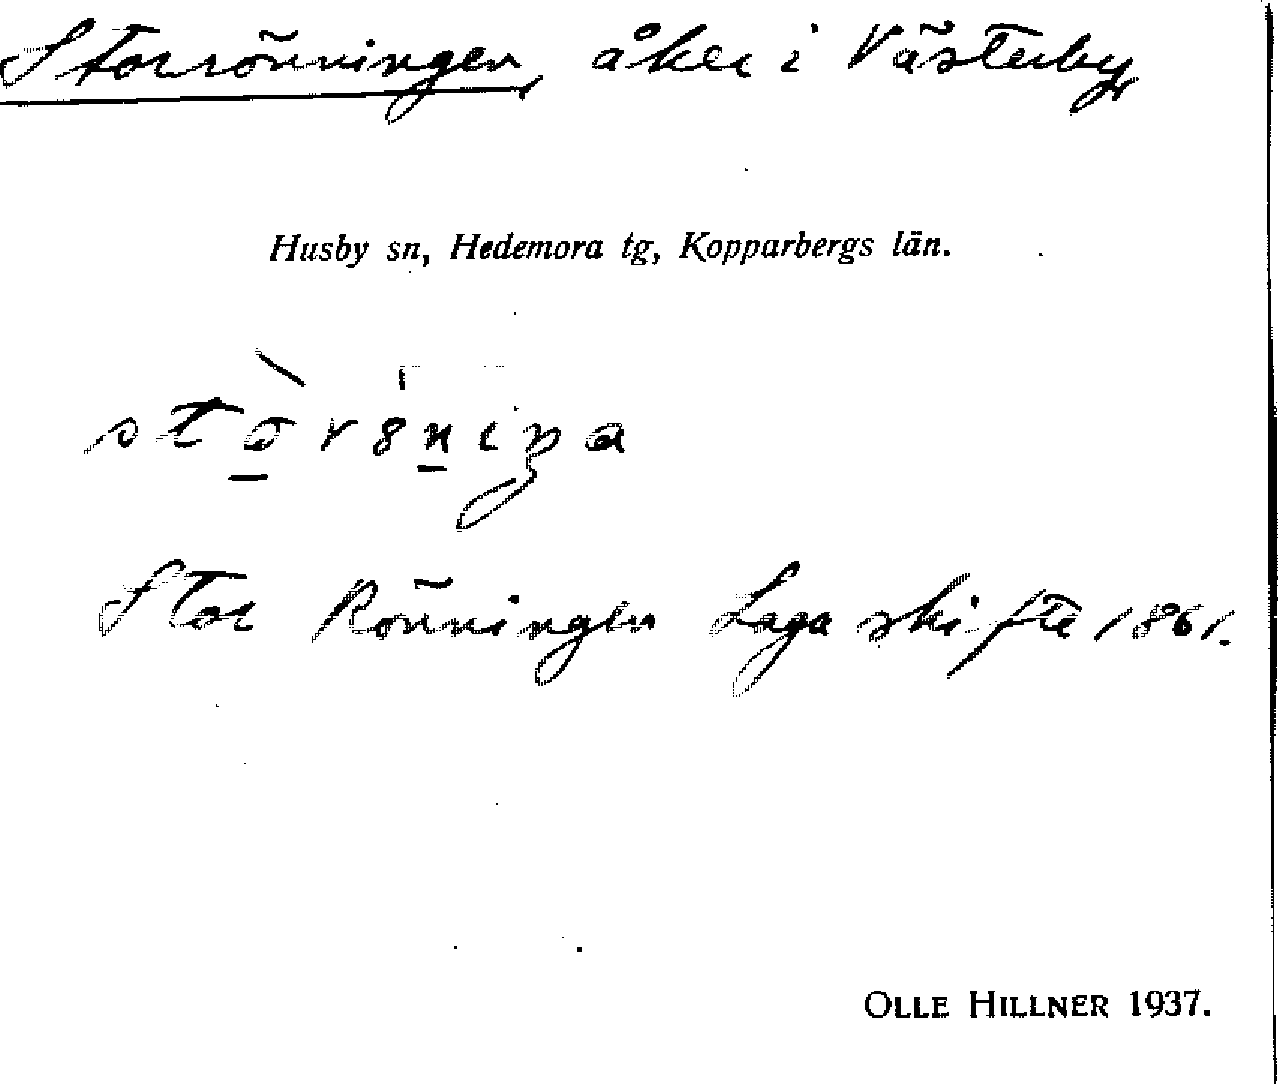 Storrönningen, åker i Västerby,
Husby sn, Hedemora tg, Kopparbergs län.
Stor Rönningen Laga skifte 1861.
OLLE HILLNER 1937.